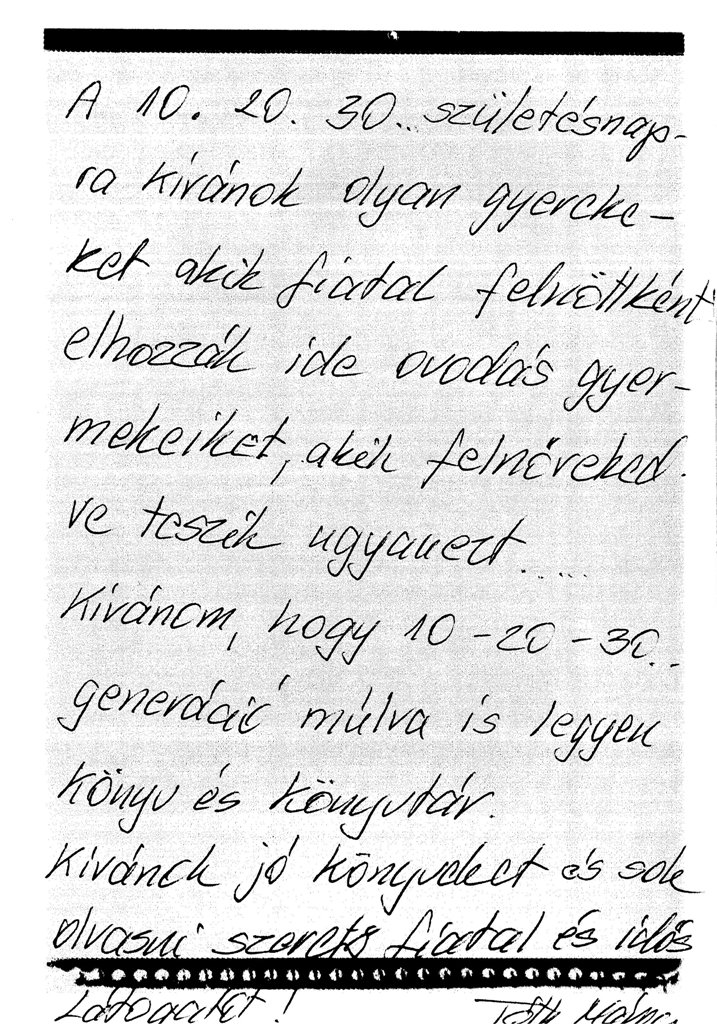 A 10. 20. 30... születésnap-
ra kívánok olyan gyereke-
ket akik fiatal felnőttként
elhozzák ide ovodás gyer-
mekeiket, akik felnöveked-
ve teszik ugyanezt.....
Kívánom, hogy 10-20-30..
generáció múlva is legyen
könyv és könyvtár.
Kívánok jó könyveket és sok
olvasni szerető fiatal és idős
Látogatót!
Tóth